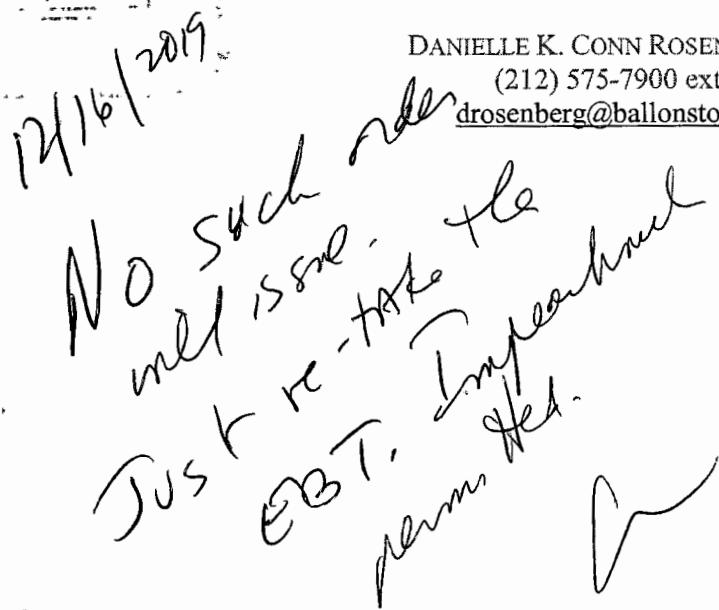 12/16/2019
DANIELLE K. CONN ROSEN
(212) 575-7900 ext
drosenberg@ballonsto
No such order
will issue.
Just re-take the
EBT. Impeachment
permitted.